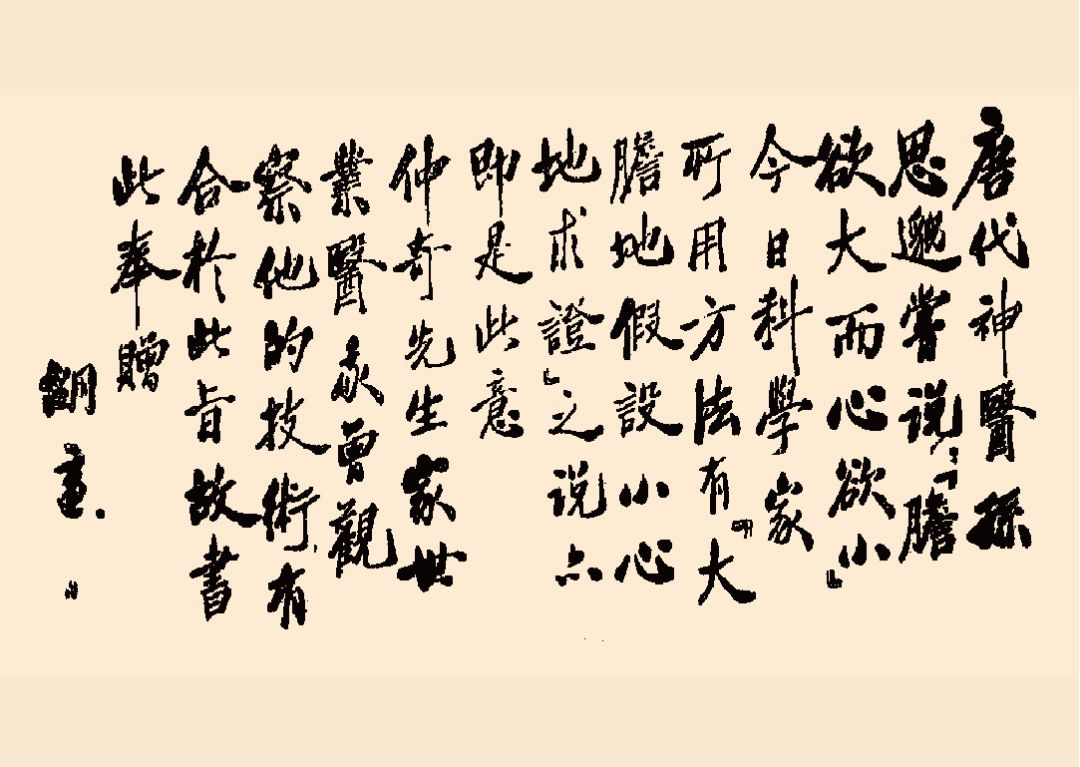 唐代神醫孫
思邈嘗说：「膽
欲大而心欲小」
今日科學家
所用方法有「大
膽地假設小心
地求證」之说亦
即是此意
仲奇先生家世
業醫我曾觀
察他的技術，有
合於此旨故書
此奉贈